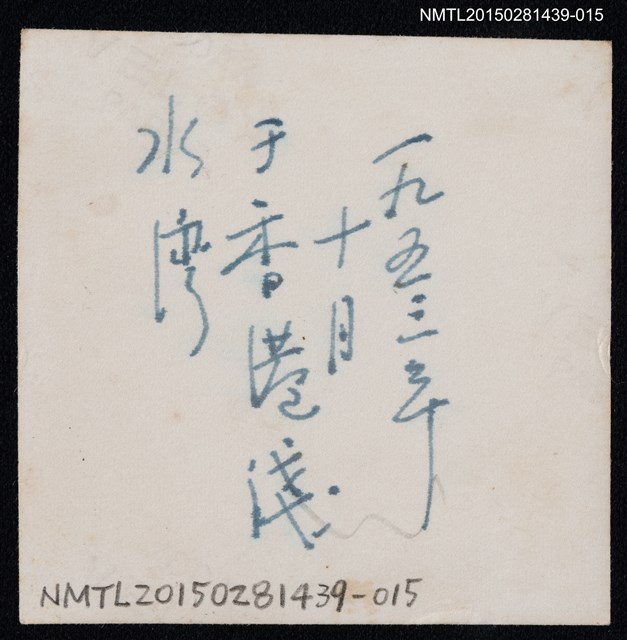 NMTL20150281439-015
一九五三年
十月
于香港浅
水湾
NMTL20150281439-015